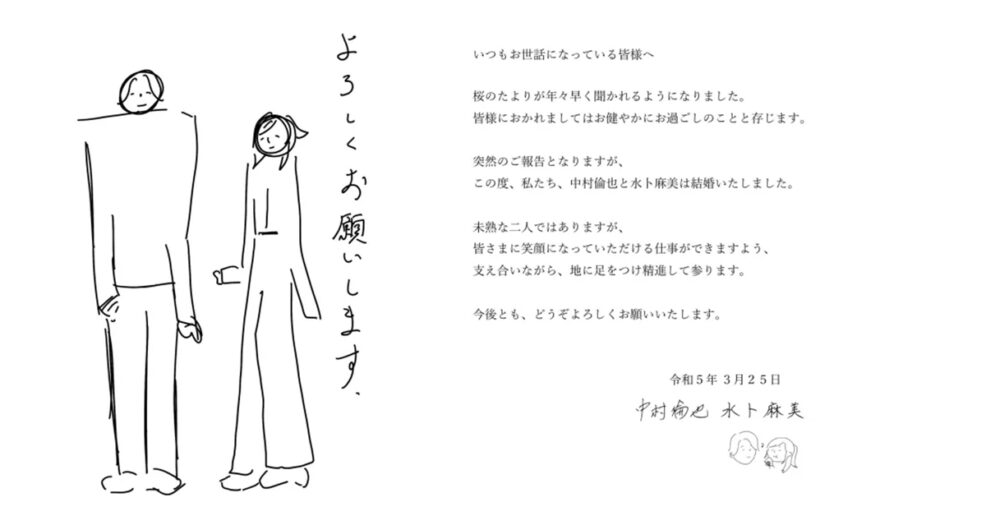 よろしくお願いします、
いつもお世話になっている皆様へ
桜のたよりが年々早く聞かれるようになりました。
皆様におかれましてはお健やかにお過ごしのことと存じます。
突然のご報告となりますが、
この度、私たち、中村倫也と水卜麻美は結婚いたしました。
未熟な二人ではありますが、
皆さまに笑顔になっていただける仕事ができますよう、
支え合いながら、地に足をつけ精進して参ります。
今後とも、どうぞよろしくお願いいたします。
令和５年 ３月２５日
中村倫也 水卜麻美